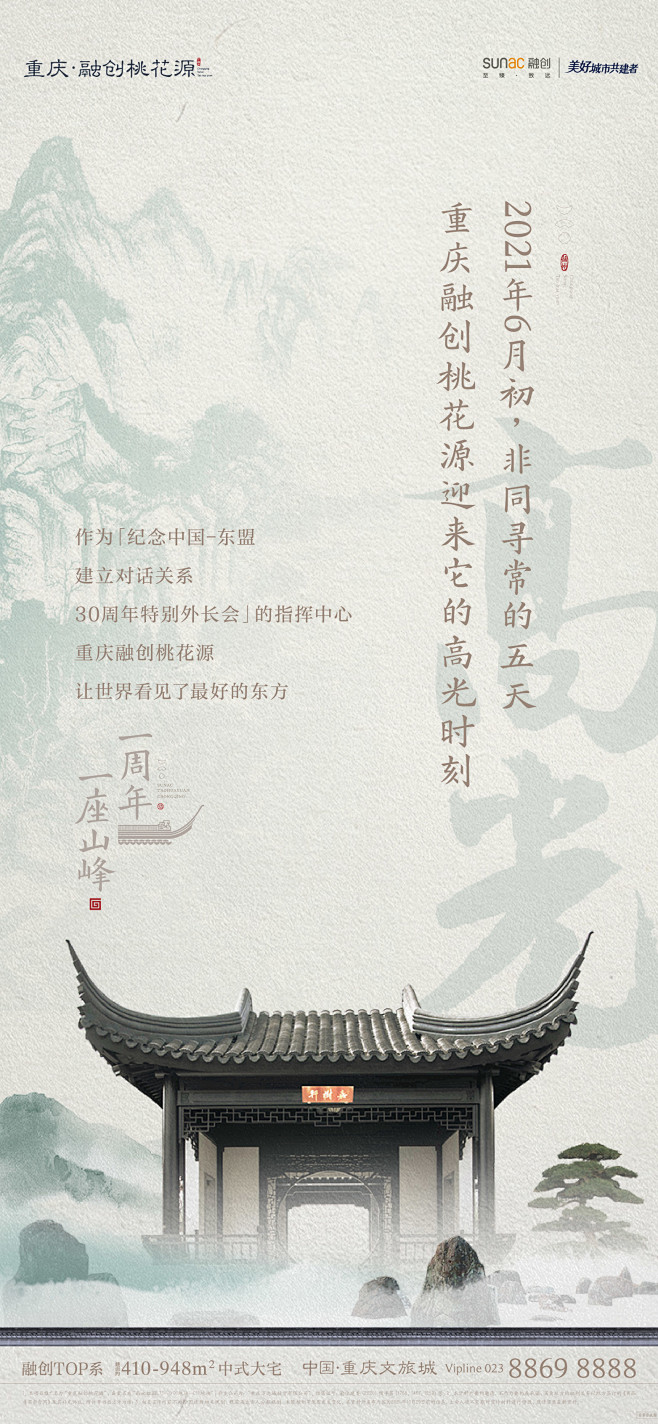 重庆·融创桃花源
sunac 融创
至臻·致远
美好城市共建者
2021年6月初，非同寻常的五天
重庆融创桃花源迎来它的高光时刻
高光
作为「纪念中国-东盟
建立对话关系
30周年特别外长会」的指挥中心
重庆融创桃花源
让世界看见了最好的东方
一周年
一座山峰
融创TOP系 建面410-948m²中式大宅 中国·重庆文旅城 Vipline 023 8869 8888